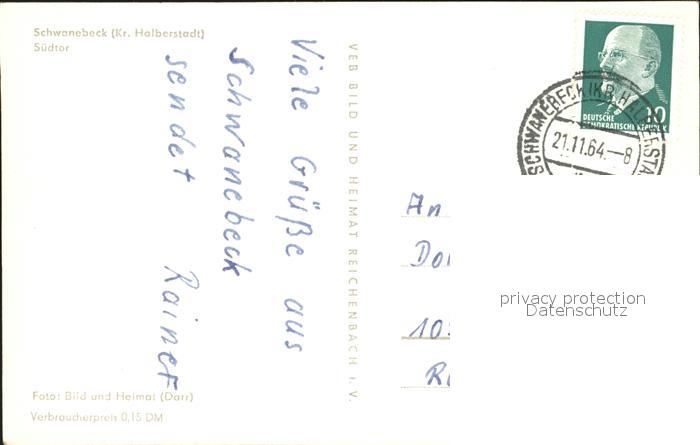 Schwanebeck (Kr. Halberstadt)
Südtor
Viele Grüße aus
Schwanebeck
sendet Rainer
VEB BILD UND HEIMAT REICHENBACH I. V.
DEUTSCHE
DEMOKRATISCHE REPUBLIK
10
SCHWANEBECK (KR. HALBERSTA
21.11.64.–8
An
privacy protection
Datenschutz
Foto: Bild und Heimat (Darr)
Verbraucherpreis 0,15 DM